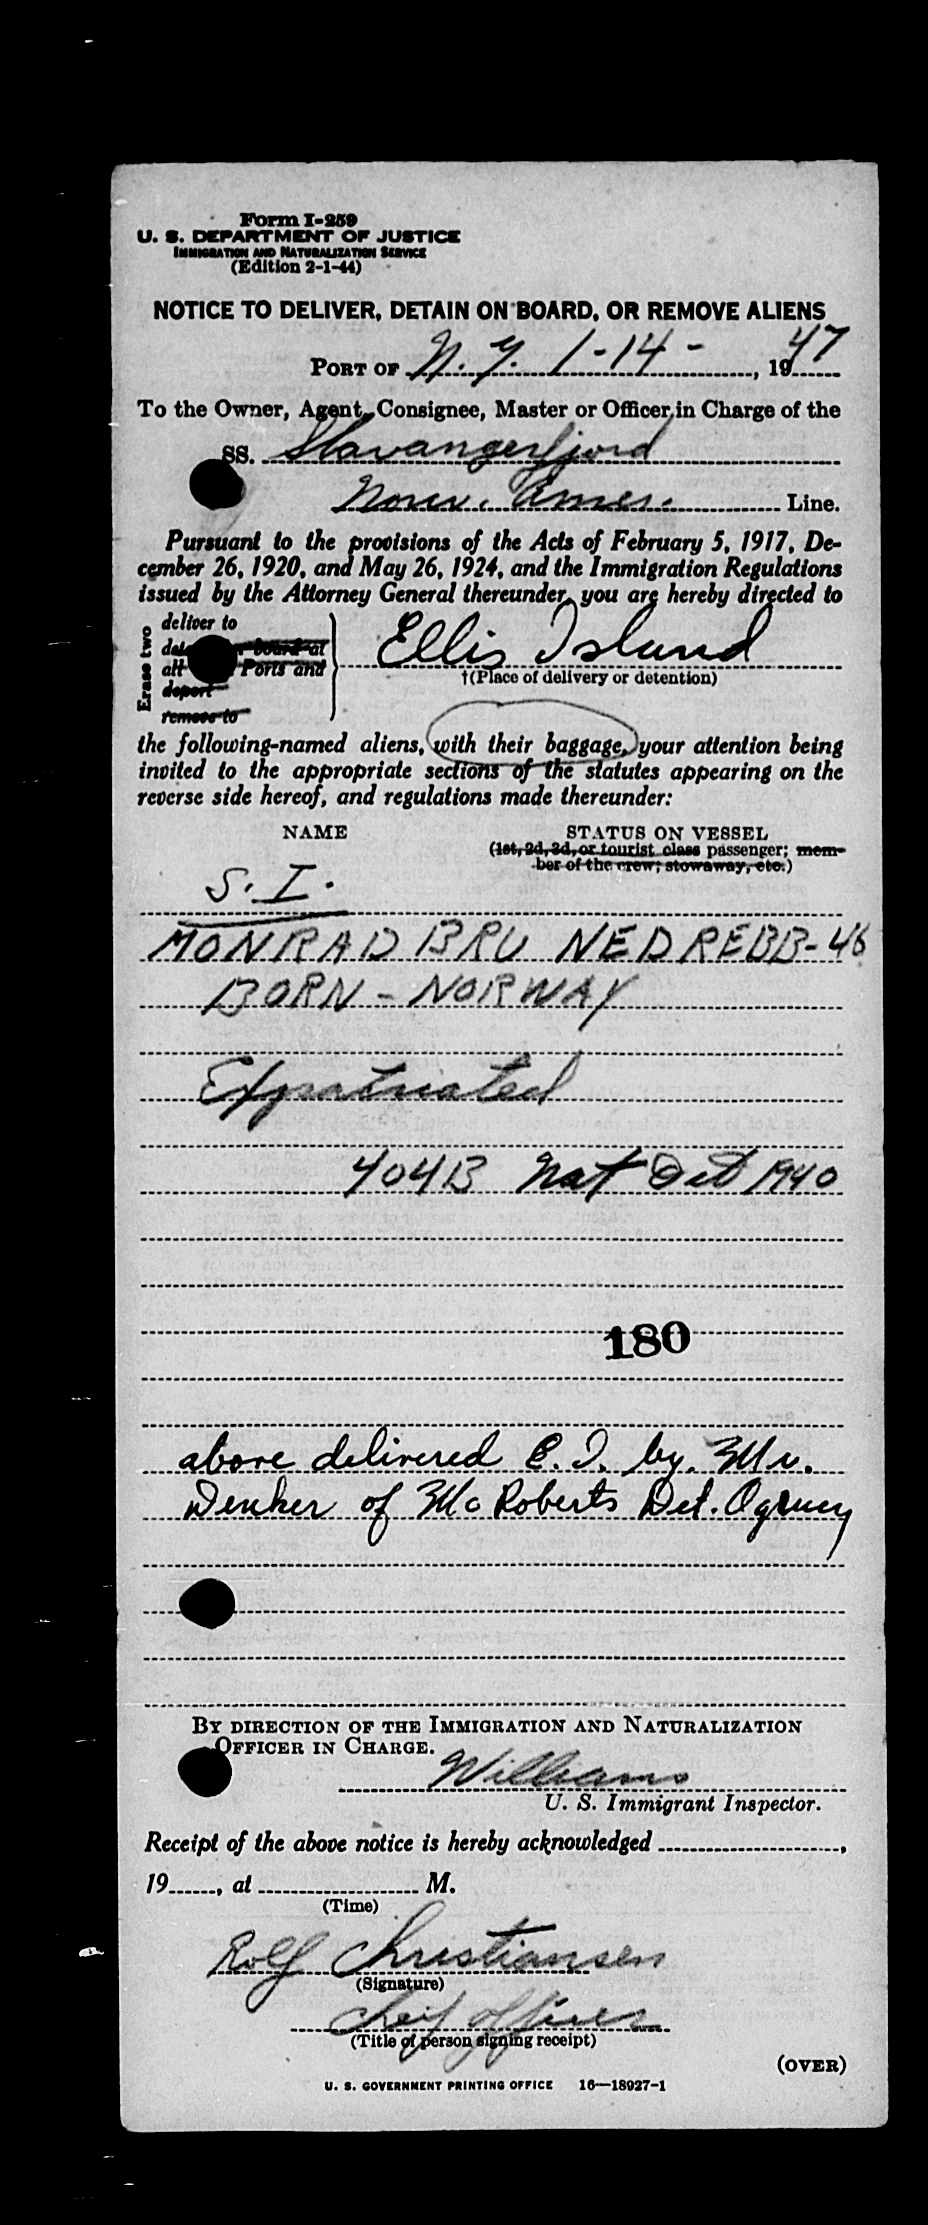 Form I-259
U. S. DEPARTMENT OF JUSTICE
IMMIGRATION AND NATURALIZATION SERVICE
(Edition 2-1-44)
NOTICE TO DELIVER, DETAIN ON BOARD, OR REMOVE ALIENS
PORT OF N. Y. 1-14-, 1947
To the Owner, Agent, Consignee, Master or Officer in Charge of the
SS. Stavangerfjord
Norw. Amer. Line.
Pursuant to the provisions of the Acts of February 5, 1917, De-
cember 26, 1920, and May 26, 1924, and the Immigration Regulations
issued by the Attorney General thereunder, you are hereby directed to
Erase two
deliver to
board at
all Ports and
deport
remove to
Ellis Island
†(Place of delivery or detention)
the following-named aliens, with their baggage, your attention being
invited to the appropriate sections of the statutes appearing on the
reverse side hereof, and regulations made thereunder:
NAME STATUS ON VESSEL
(1st, 2d, 3d, or tourist class passenger; mem-
ber of the crew; stowaway, etc.)
S. I.
MONRAD BRU NEDREBB-46
BORN - NORWAY
Expatriated
404B Nat 1940
180
above delivered E. I. by Mr.
Denker of McRoberts Det. Agency
BY DIRECTION OF THE IMMIGRATION AND NATURALIZATION
OFFICER IN CHARGE.
Williams
U. S. Immigrant Inspector.
Receipt of the above notice is hereby acknowledged ,
19 , at M.
(Time)
Rolf Christiansen
(Signature)
cheif officer
(Title of person signing receipt)
(OVER)
U. S. GOVERNMENT PRINTING OFFICE 16—18927-1